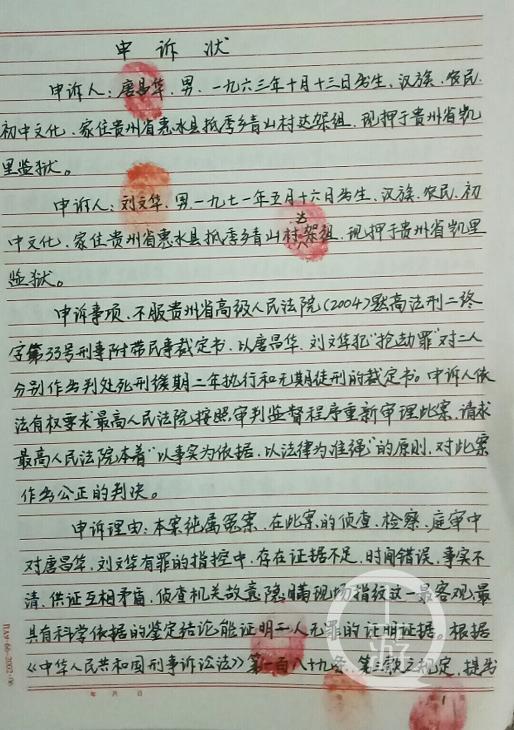 申诉状
申诉人：唐昌华，男，一九六三年十月十三日出生，汉族，农民，
初中文化，家住贵州省惠水县抵季乡青山村达架组，现押于贵州省凯
里监狱。
申诉人：刘文华，男一九七一年五月十六日出生，汉族，农民，初
中文化，家住贵州省惠水县抵季乡青山村达架组，现押于贵州省凯里
监狱。
申诉事项，不服贵州省高级人民法院（2004）黔高法刑二终
字第33号刑事附带民事裁定书，以唐昌华、刘文华犯“抢劫罪”对二人
分别作出判处死刑缓期二年执行和无期徒刑的裁定书。申诉人依
法有权要求最高人民法院按照审判监督程序重新审理此案，请求
最高人民法院本着“以事实为依据，以法律为准绳”的原则，对此案
作出公正的判决。
申诉理由：本案纯属冤案，在此案的侦查、检察、庭审中
对唐昌华、刘文华有罪的指控中，存在证据不足，时间错误，事实不
清，供证互相矛盾，侦查机关故意隐瞒现场指纹这一最客观、最
具有科学依据的鉴定结论，能证明二人无罪的证明证据。根据
《中华人民共和国刑事诉讼法》第一百八十九条，第三款之规定，提出
年 月 日
1
上游